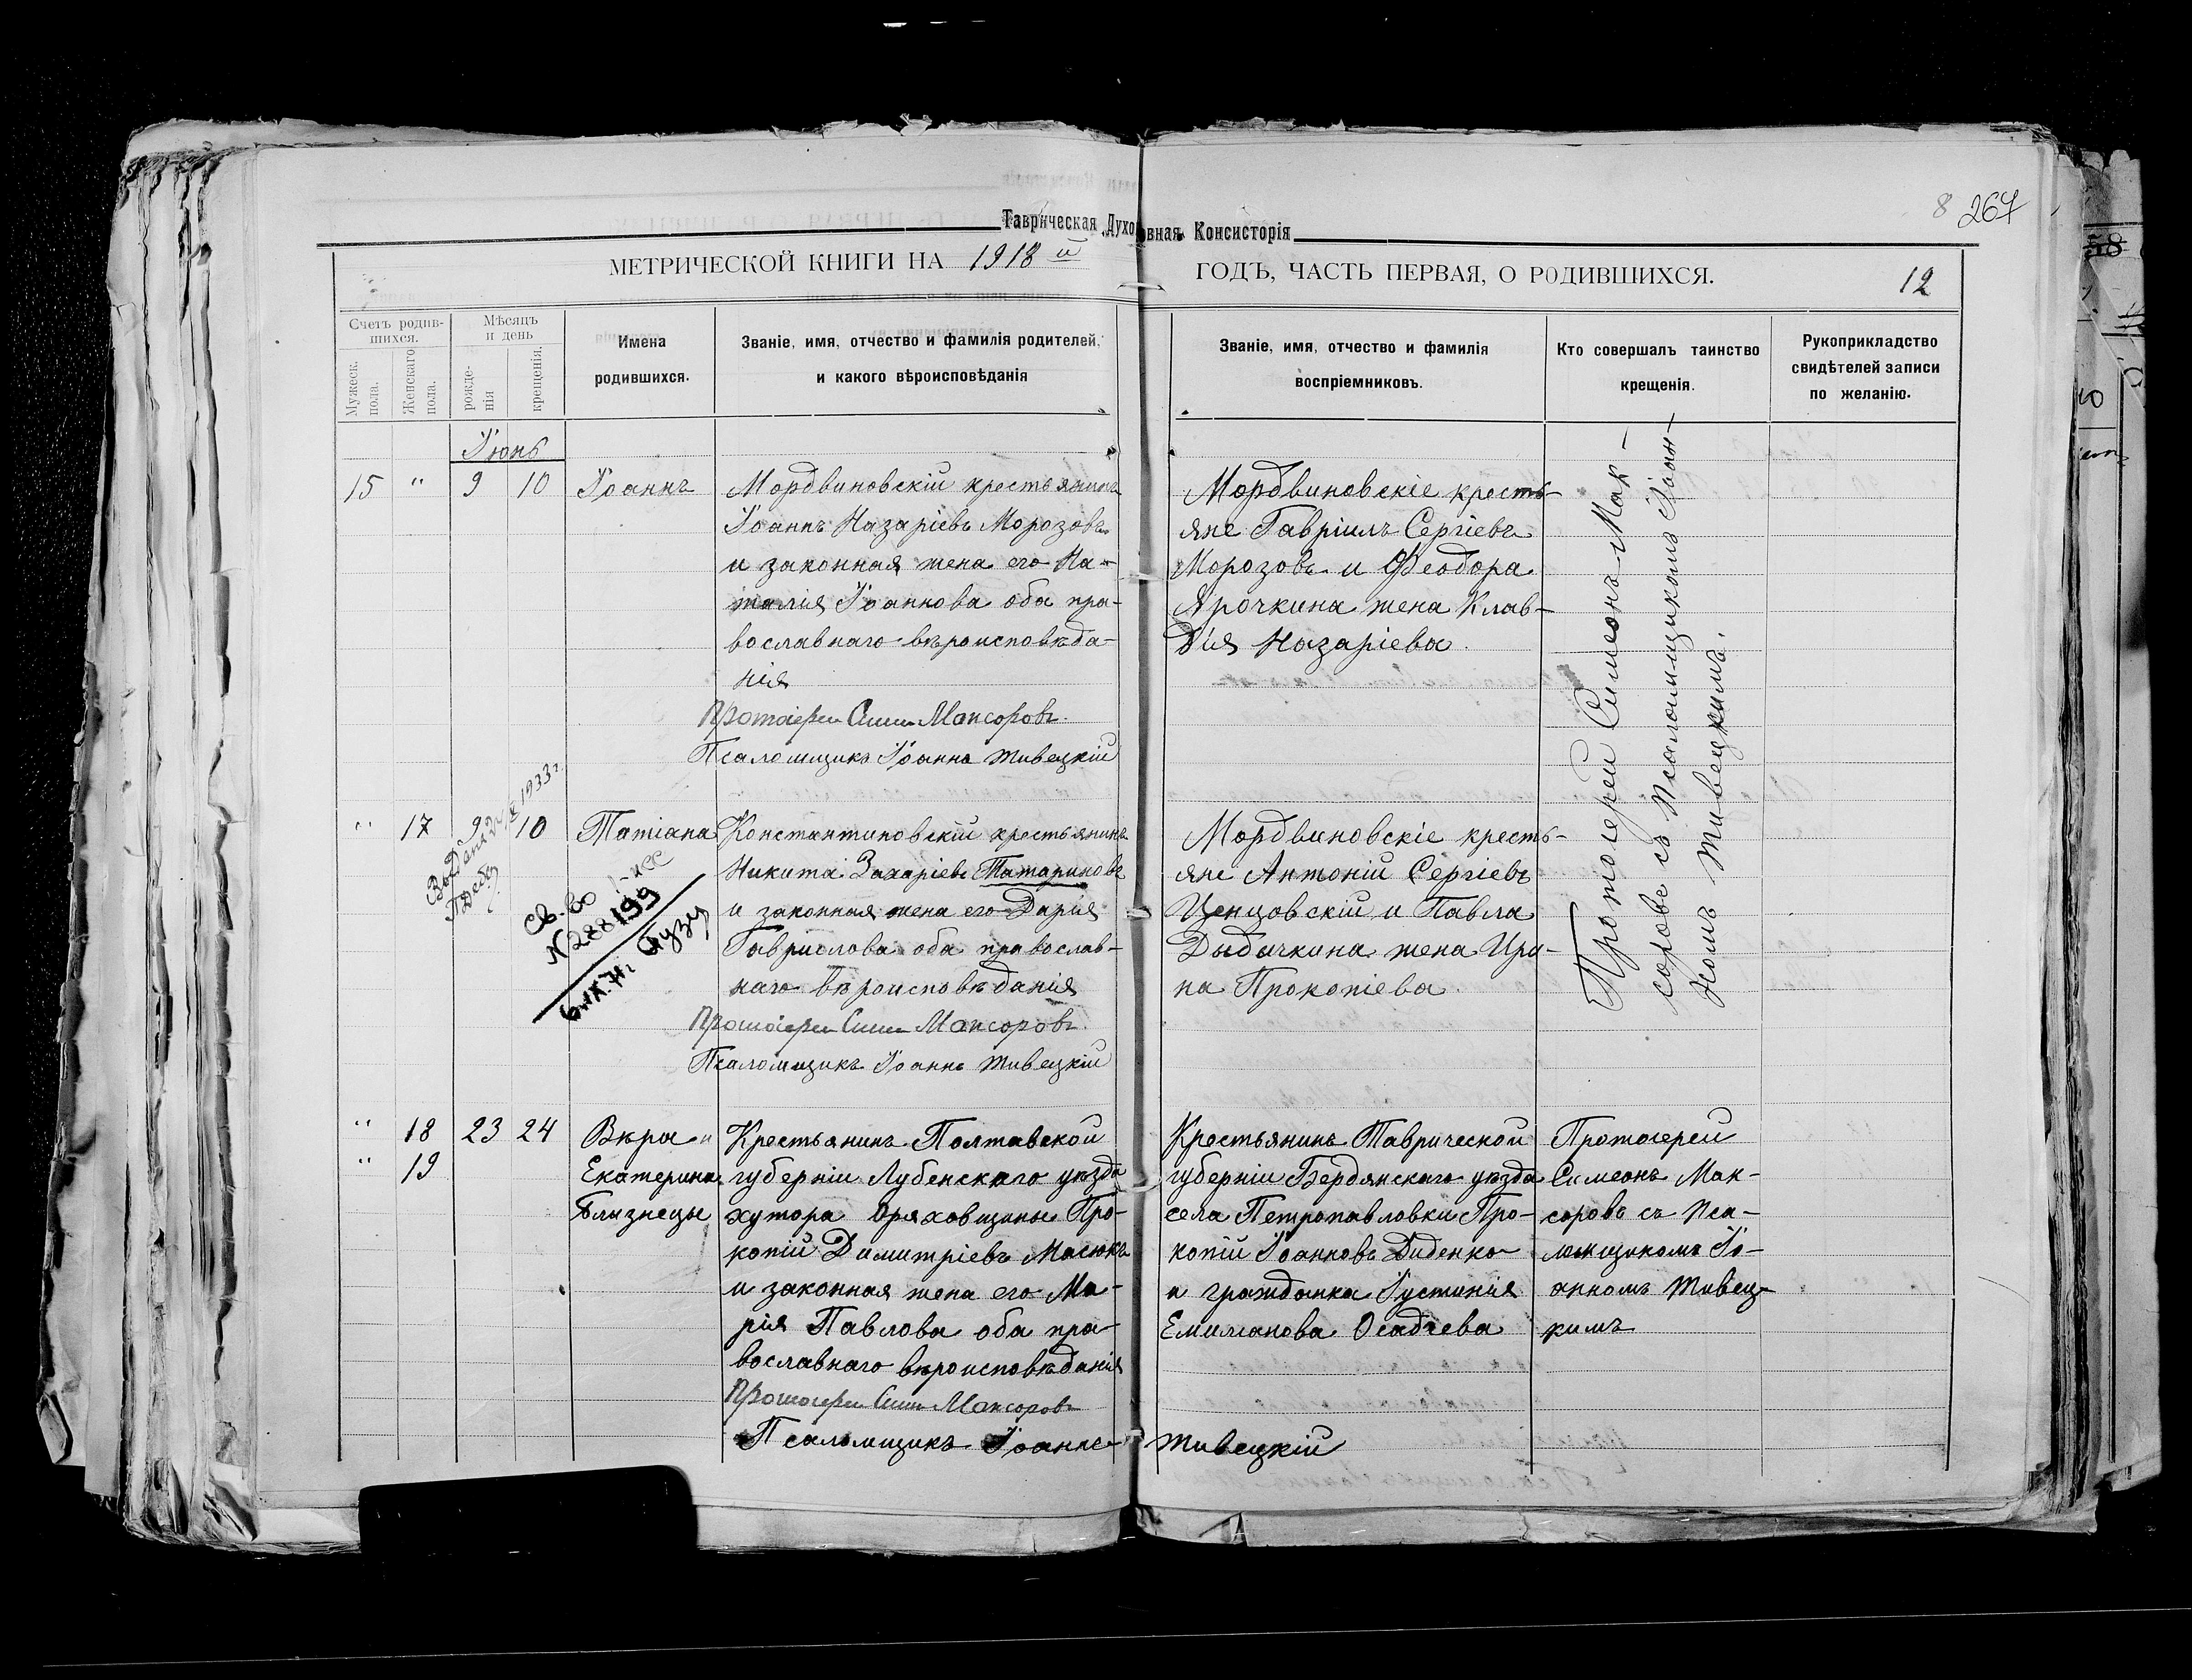 Таврическая Духовная Консисторія
8 267
МЕТРИЧЕСКОЙ КНИГИ НА 1918 й ГОДЪ, ЧАСТЬ ПЕРВАЯ, О РОДИВШИХСЯ.
12
Счетъ родив-
шихся.
Мужеск.
пола.
Женскаго
пола.
Мѣсяцъ
и день
рожде-
нія
крещенія.
Имена
родившихся.
Званіе, имя, отчество и фамилія родителей,
и какого вѣроисповѣданія
Званіе, имя, отчество и фамилія
воспріемниковъ.
Кто совершалъ таинство
крещенія.
Рукоприкладство
свидѣтелей записи
по желанію.
Іюнь
15 " 9 10 Іоаннъ
Мордвиновскій крестьянинъ
Іоаннъ Назаріевъ Морозовъ
и законная жена его На-
талія Іоаннова оба пра-
вославнаго вѣроисповѣда-
нія
Протоіерей Симеонъ Максоровъ
Псаломщикъ Іоаннъ Живецкій
Мордвиновскіе кресть-
яне Гавріилъ Сергіевъ
Морозовъ и Феодора
Ярочкина жена Клав-
дія Назаріева.
Протоіерей Симеонъ Мак-
соровъ съ Псаломщикомъ Іоан-
номъ Живецкимъ.
" 17 9 10 Татіана
Константиновскій крестьянинъ
Никита Захаріевъ Татариновъ
и законная жена его Дарія
Гавриилова оба православ-
наго вѣроисповѣданія
Протоіерей Симеонъ Максоровъ
Псаломщикъ Іоаннъ Живецкій
1933 г.
Св-во
N 288199
6.IX.71г
Мордвиновскіе кресть-
яне Антоній Сергіевъ
Ценцовскій и Павла
Дыбачкина жена Ири-
на Прокопіева.
" 18 23 24 Вѣра и
" 19 Екатерина
Близнецы
Крестьянинъ Полтавской
губерніи Лубенскаго уѣзда
хутора Оряховщины Про-
копій Димитріевъ Масюкъ
и законная жена его Ма-
рія Павлова оба пра-
вославнаго вѣроисповѣданія
Протоіерей Симеонъ Максоровъ
Псаломщикъ Іоаннъ Живецкій
Крестьянинъ Таврической
губерніи Бердянскаго уѣзда
села Петропавловки Про-
копій Іоанновъ Диденко
и гражданка Іустинія
Емиліанова Осадчева
Протоіерей
Симеонъ Мак-
соровъ съ Пса-
ломщикомъ Іо-
анномъ Живец-
кимъ